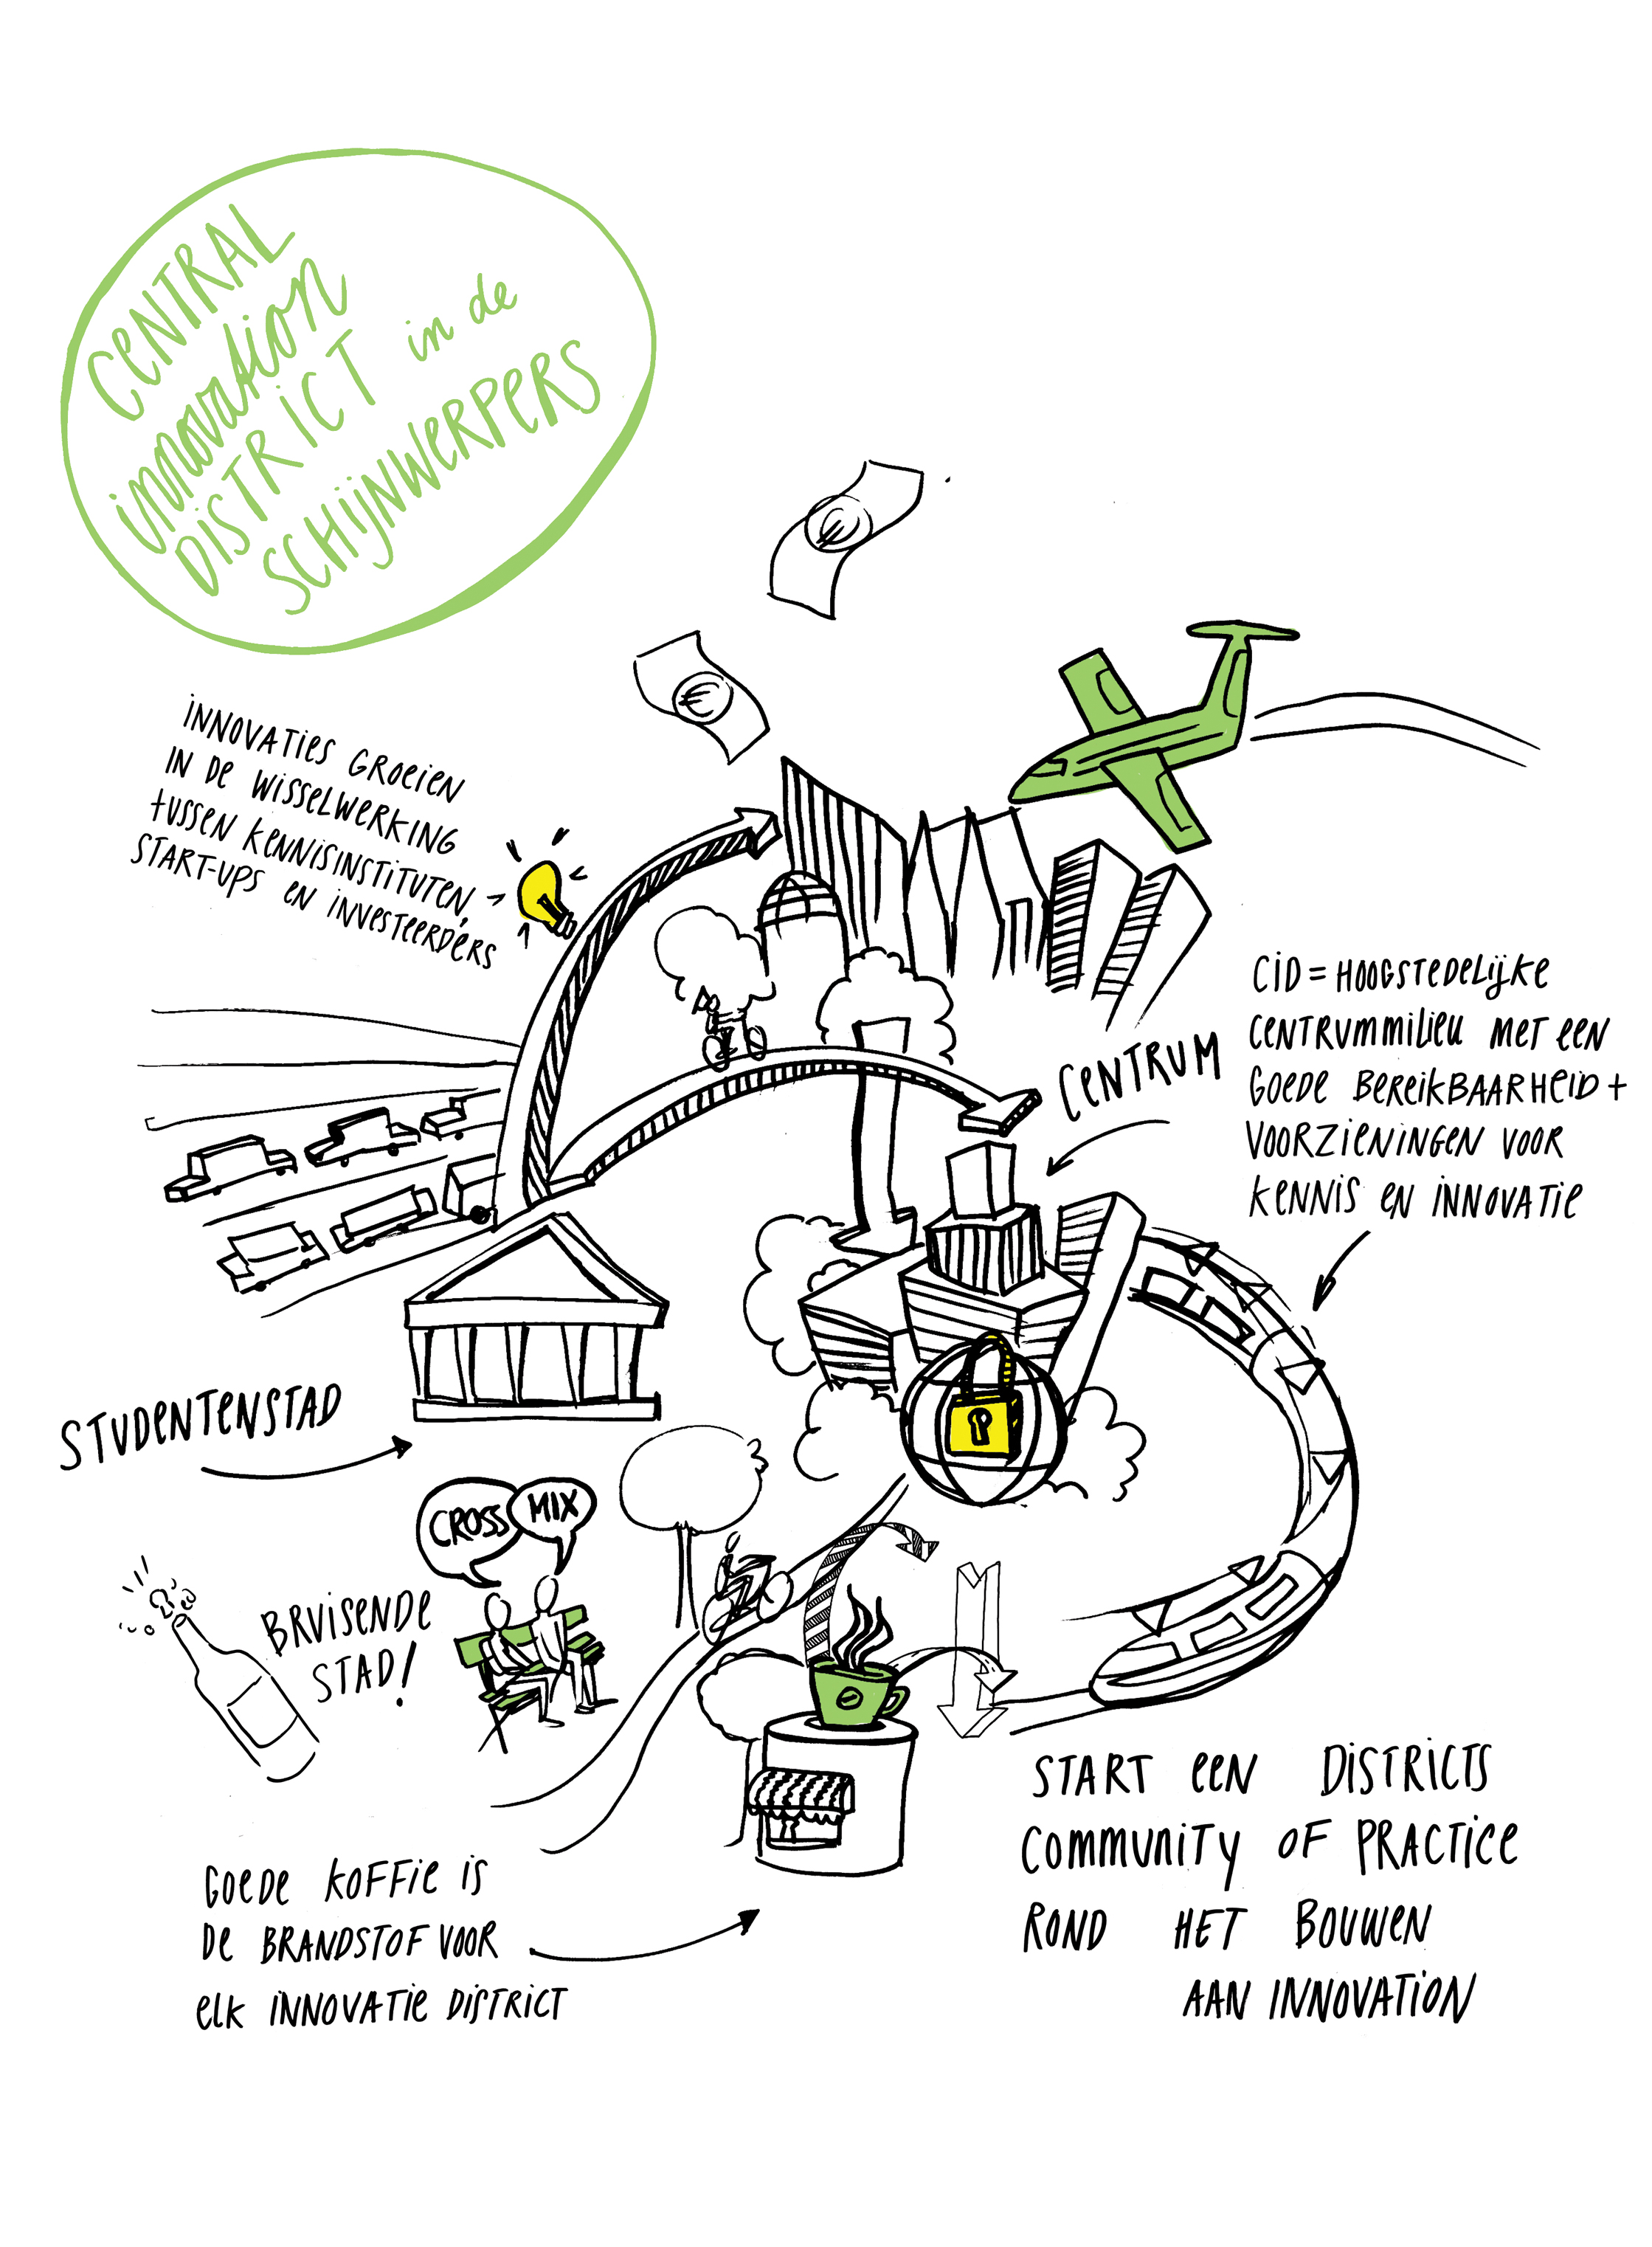 CENTRAL
innovation
DISTRICT in de
SCHIJNWERPERS
INNOVATIES GROEIEN
IN DE WISSELWERKING
TUSSEN KENNISINSTITUTEN,
START-UPS EN INVESTEERDERS
CID = HOOGSTEDELIJKE
CENTRUMMILIEU MET EEN
GOEDE BEREIKBAARHEID +
VOORZIENINGEN VOOR
KENNIS EN INNOVATIE
CENTRUM
STUDENTENSTAD
CROSS
MIX
BRUISENDE
STAD!
GOEDE KOFFIE IS
DE BRANDSTOF VOOR
ELK INNOVATIE DISTRICT
START EEN DISTRICTS
COMMUNITY OF PRACTICE
ROND HET BOUWEN
AAN INNOVATION